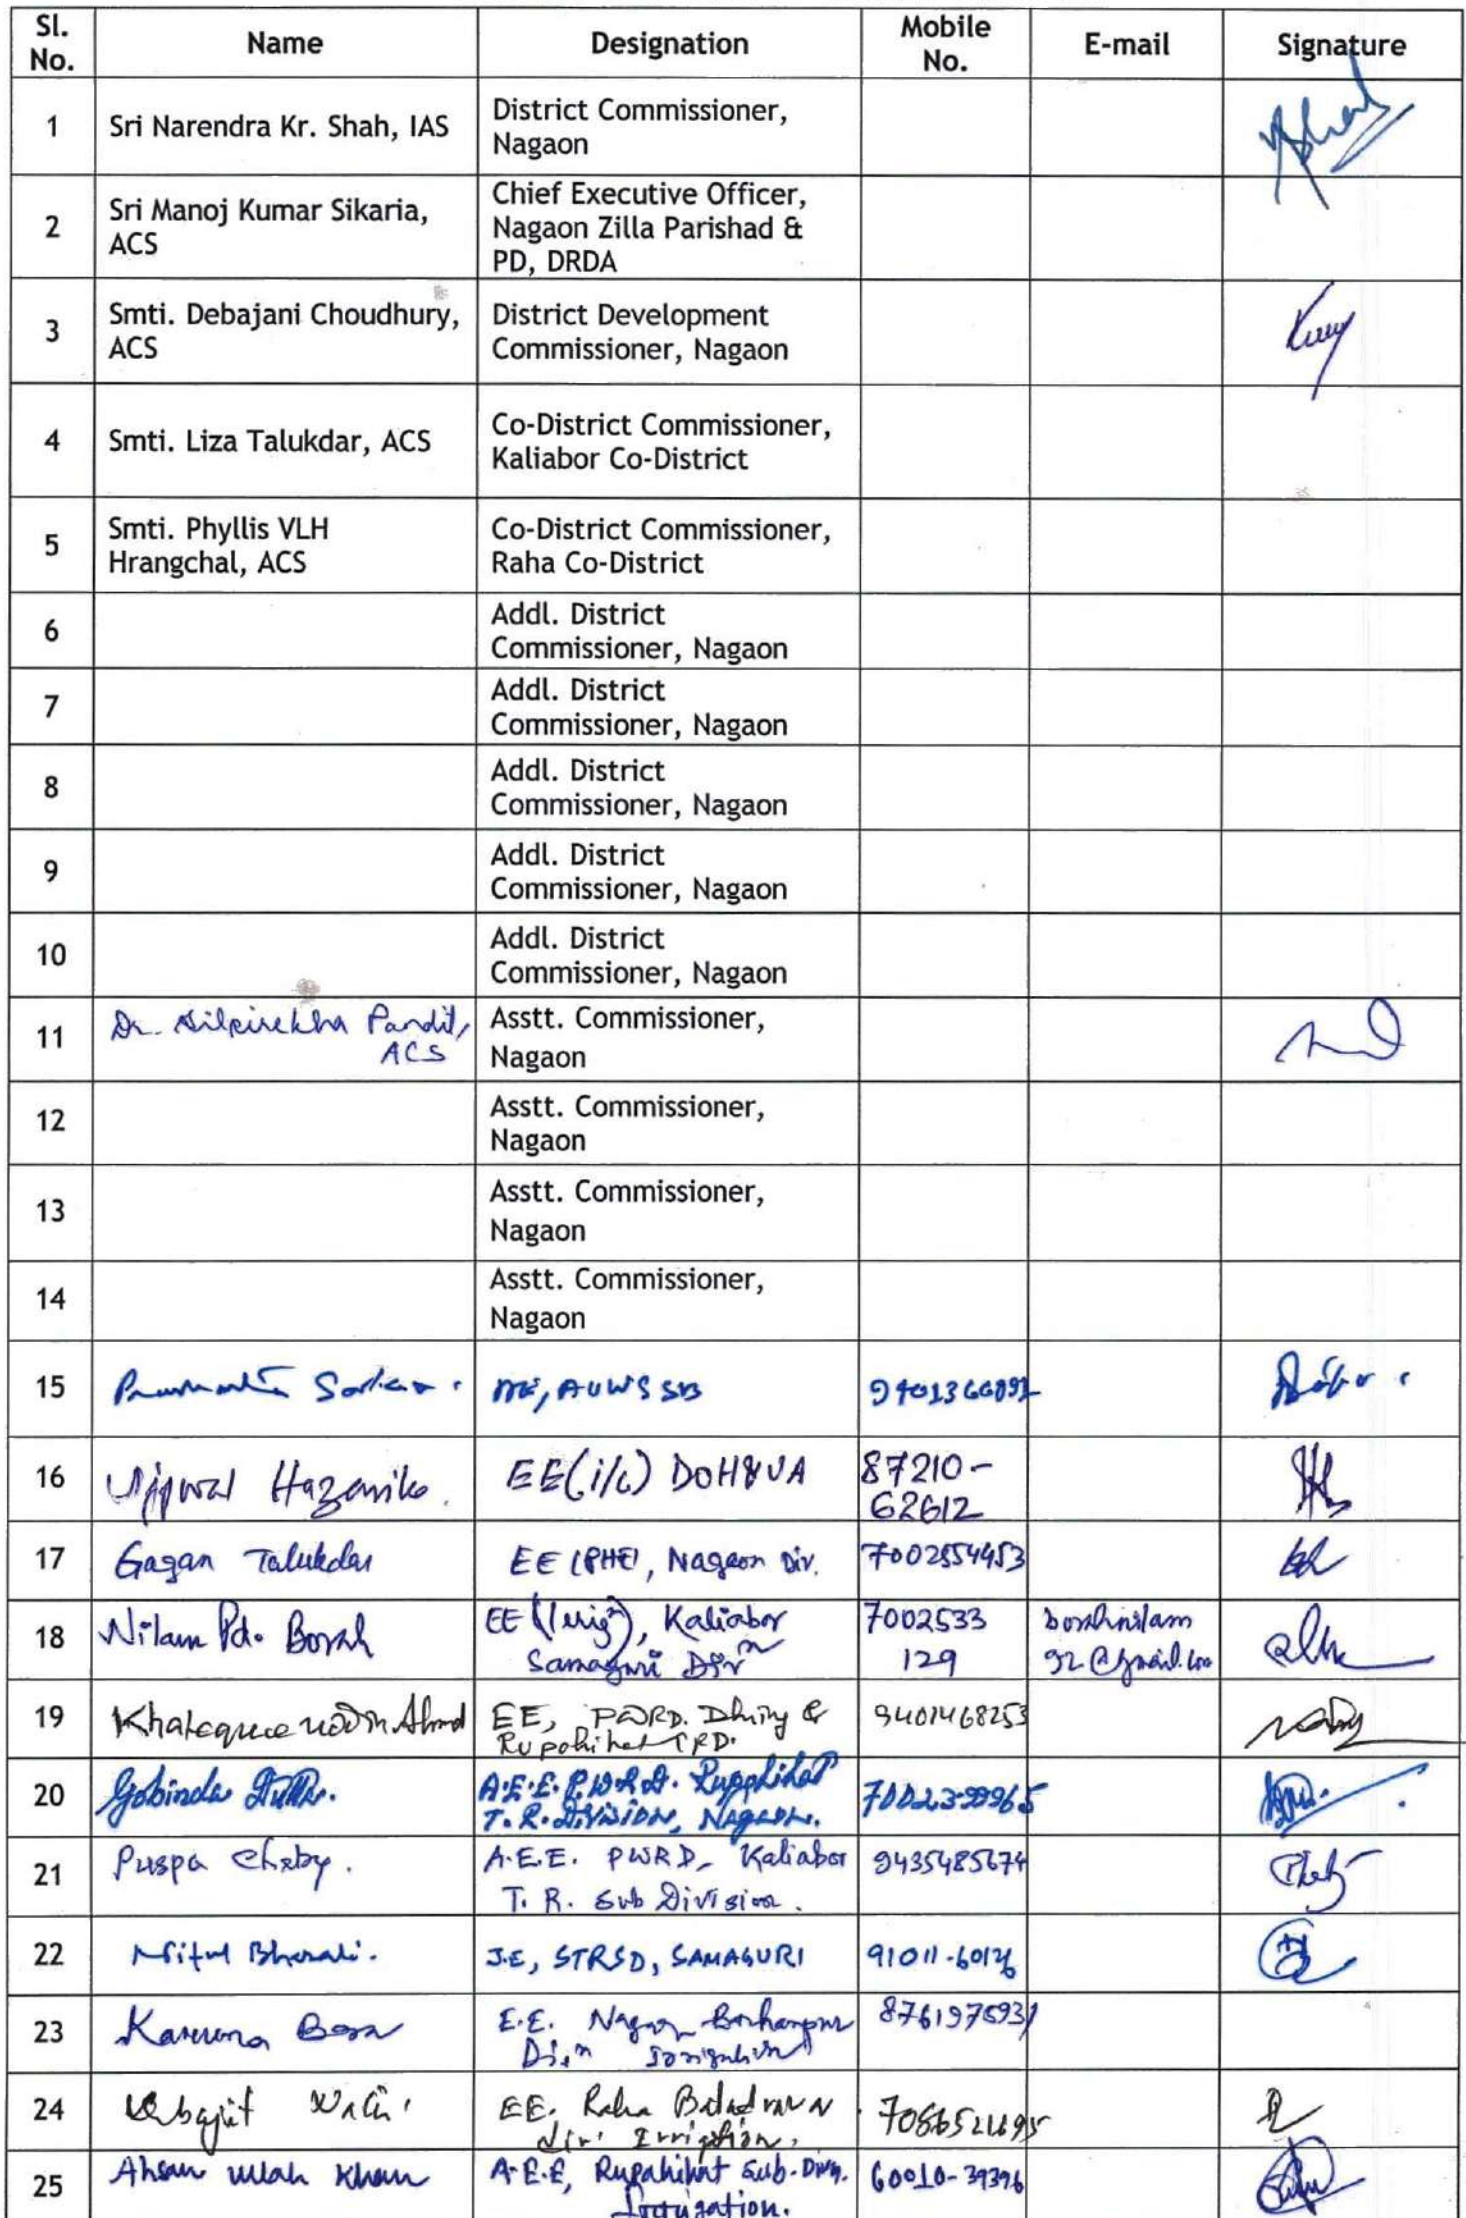 Sl. No. Name Designation Mobile No. E-mail Signature
1 Sri Narendra Kr. Shah, IAS District Commissioner,
Nagaon
2 Sri Manoj Kumar Sikaria,
ACS Chief Executive Officer,
Nagaon Zilla Parishad &
PD, DRDA
3 Smti. Debajani Choudhury,
ACS District Development
Commissioner, Nagaon
4 Smti. Liza Talukdar, ACS Co-District Commissioner,
Kaliabor Co-District
5 Smti. Phyllis VLH
Hrangchal, ACS Co-District Commissioner,
Raha Co-District
6 Addl. District
Commissioner, Nagaon
7 Addl. District
Commissioner, Nagaon
8 Addl. District
Commissioner, Nagaon
9 Addl. District
Commissioner, Nagaon
10 Addl. District
Commissioner, Nagaon
11 Dr. Pandit,
ACS Asstt. Commissioner,
Nagaon
12 Asstt. Commissioner,
Nagaon
13 Asstt. Commissioner,
Nagaon
14 Asstt. Commissioner,
Nagaon
15 AUWSSB
16 Ujjwal Hazarika. EE(i/c) DOH&UA 87210-
62612
17 Gagan Talukdar EE (PHE), Nagaon Div. 7002554453
18 Nilam Pd. Borah EE (Irrign), Kaliabor
Samaguri Divn 7002533
129 borahnilam
92@gmail.com
19 Ahmed EE, PWRD. Dhing &
Rupohihat TRD. 9401468253
20 Gobinda A.E.E. P.W.R.D. Rupohihat
T. R. DIVISION, NAGAON.
21 Puspa A.E.E. PWRD, Kaliabor
T. R. Sub Division. 9435485674
22 Nitul Bharali. J.E, STRSD, SAMAGURI 91011-60126
23 Karuna Bora E.E. Nagaon
Irrigation
24 EE. Raha
Div. Irrigation,
25 Ahsan ullah Khan A.E.E, Rupahihat Sub-Divn.
Irrigation. 60010-39396